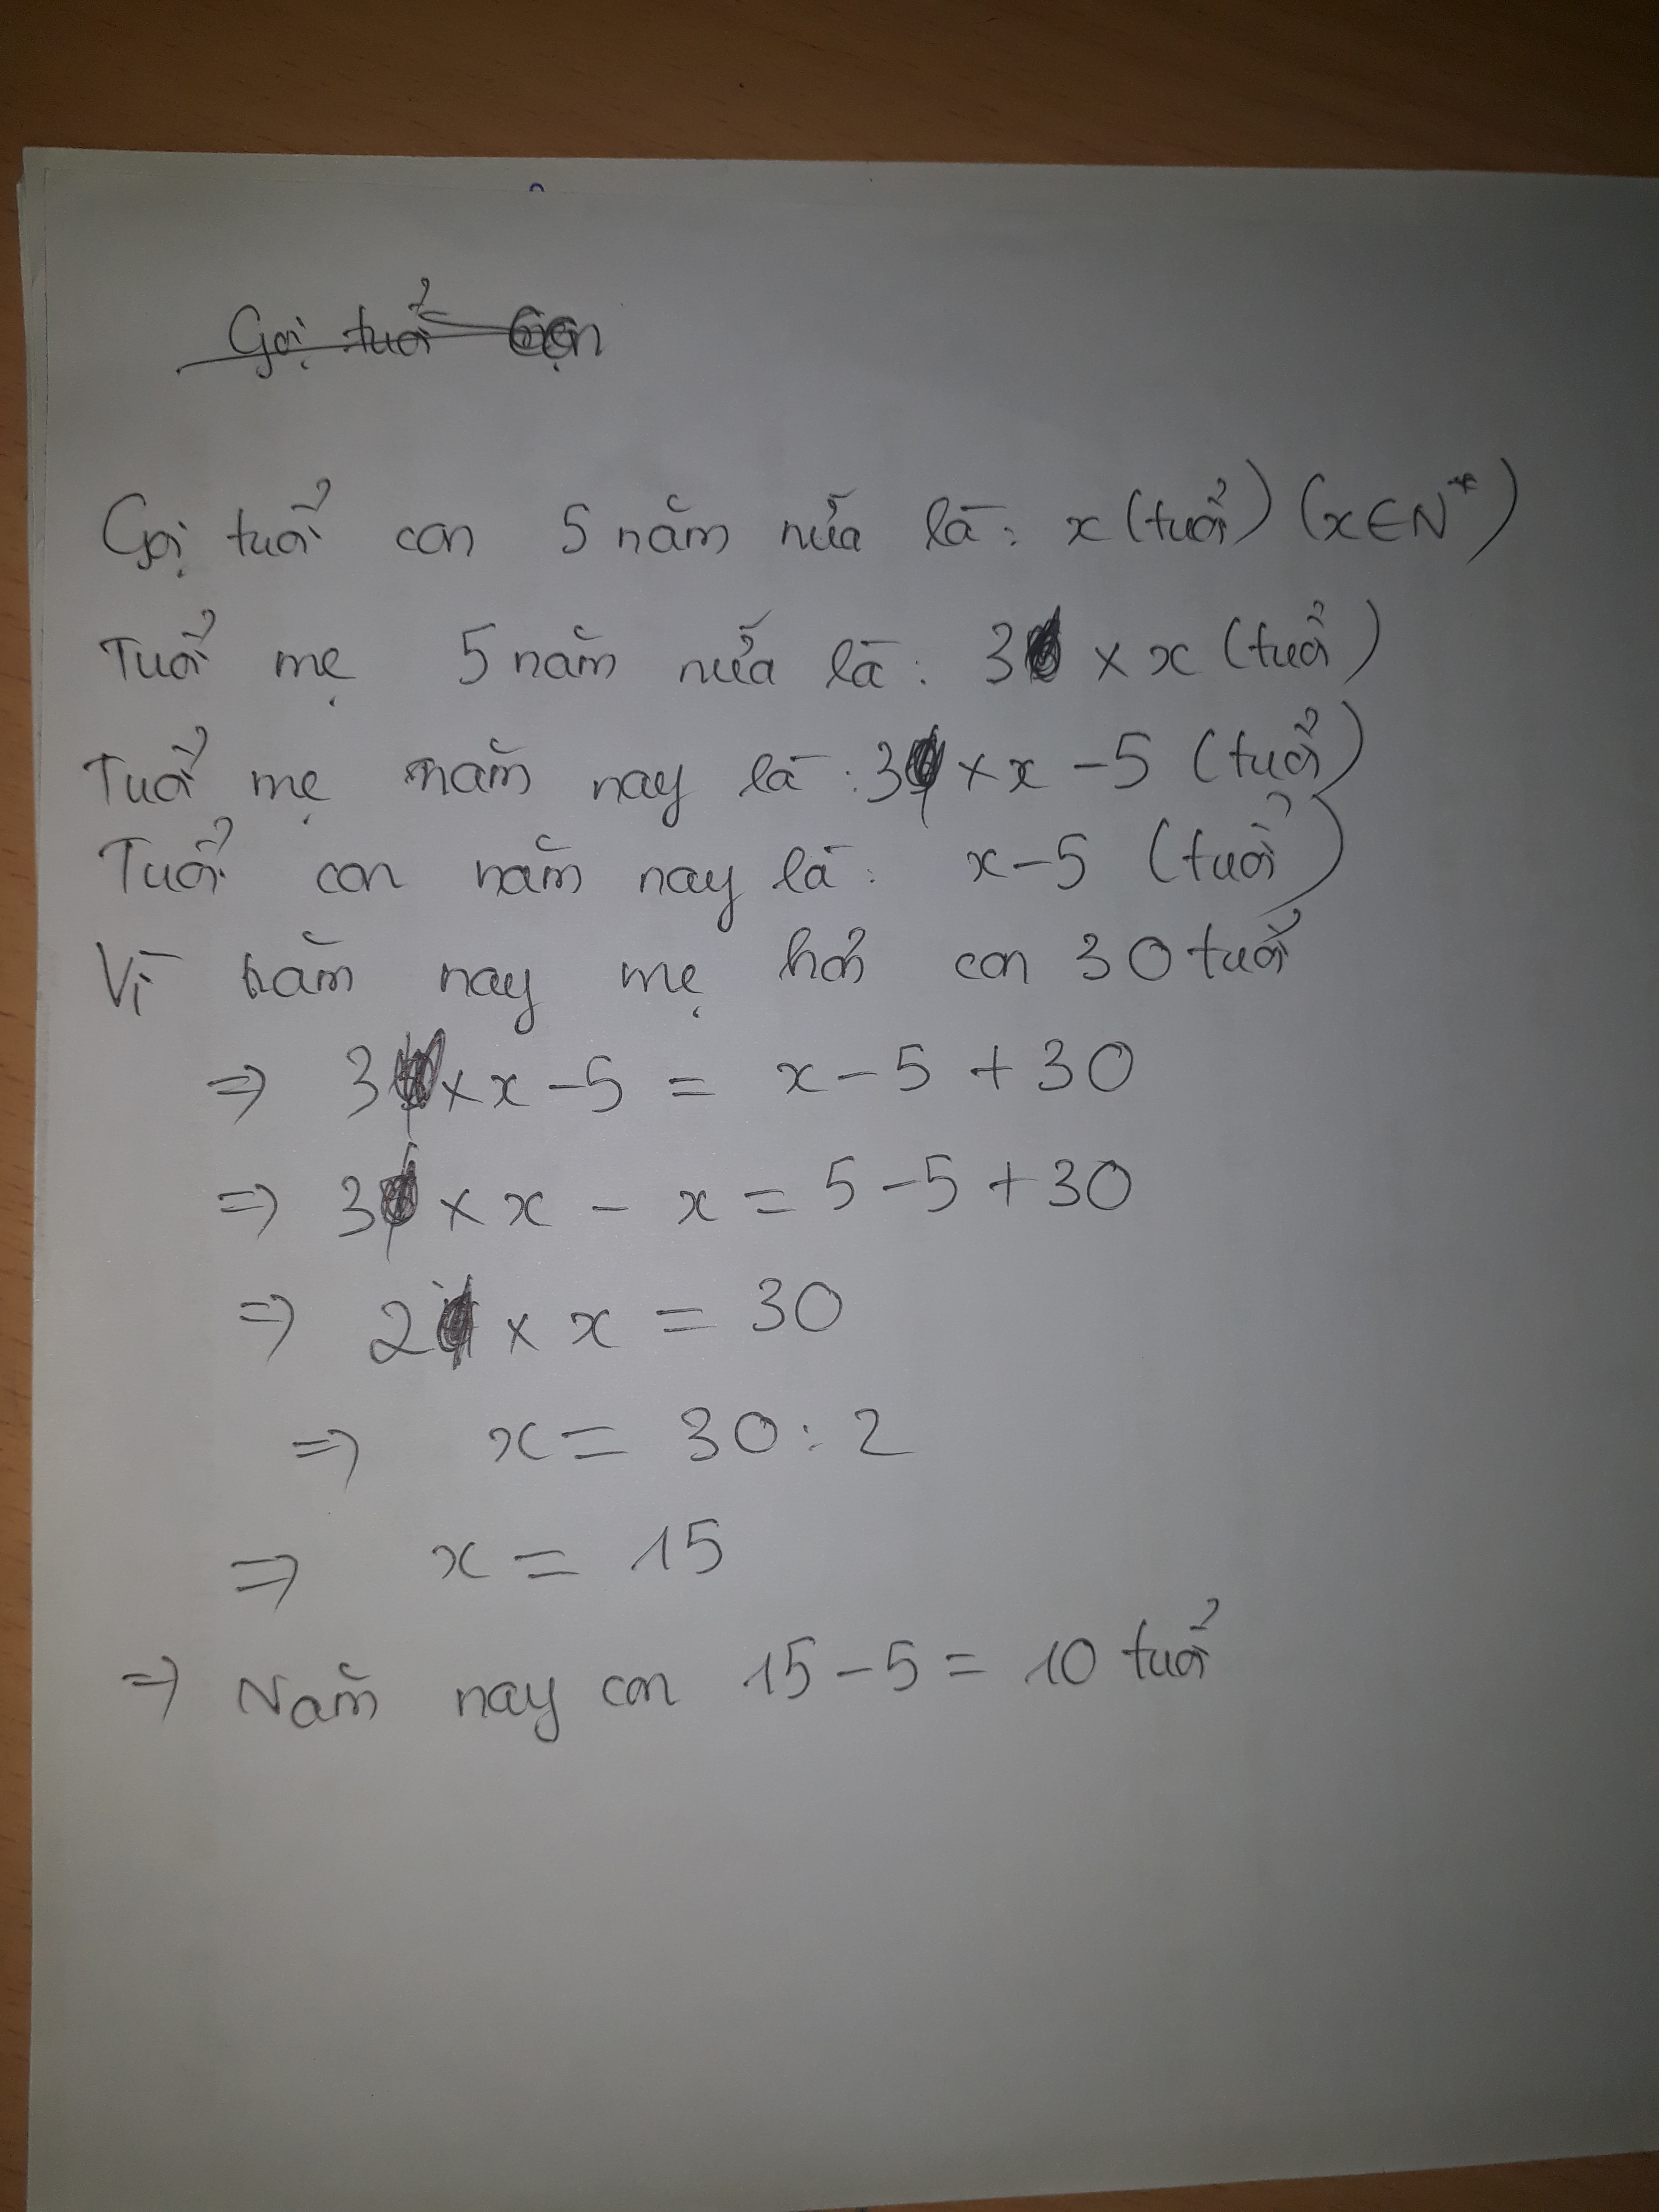 Gọi tuổi
Gọi tuổi con 5 năm nữa là: x (tuổi) (x∈N*)
Tuổi mẹ 5 năm nữa là: 3 × x (tuổi)
Tuổi mẹ năm nay là: 3 × x - 5 (tuổi)
Tuổi con năm nay là: x - 5 (tuổi)
Vì năm nay mẹ hơn con 30 tuổi
=> 3 × x - 5 = x - 5 + 30
=> 3 × x - x = 5 - 5 + 30
=> 2 × x = 30
=> x = 30 : 2
=> x = 15
=> Năm nay con 15 - 5 = 10 tuổi